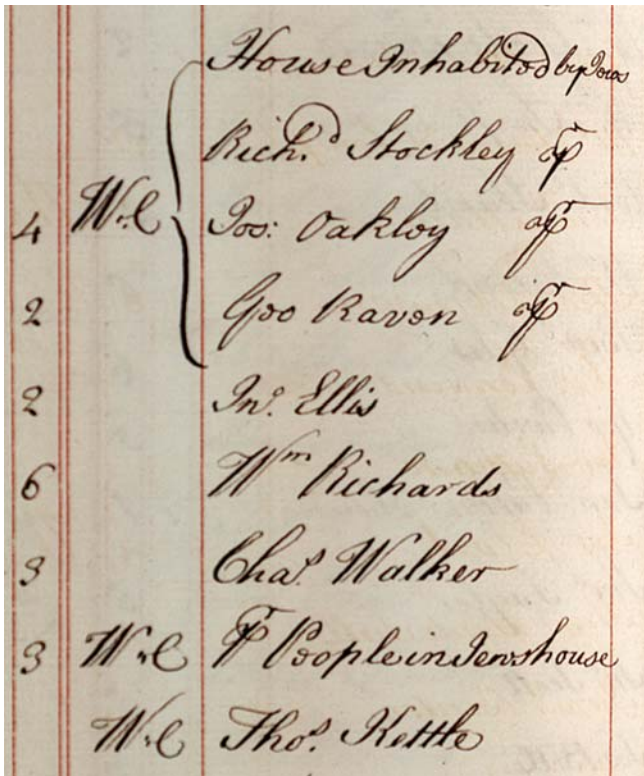 House Inhabited by Jews
Richd. Stockley
4 W.C Jos: Oakley
2 Geo Raven
2 Jno. Ellis
6 Wm Richards
3 Chas. Walker
3 W.C People in Jews house
W.C Thos. Kettle